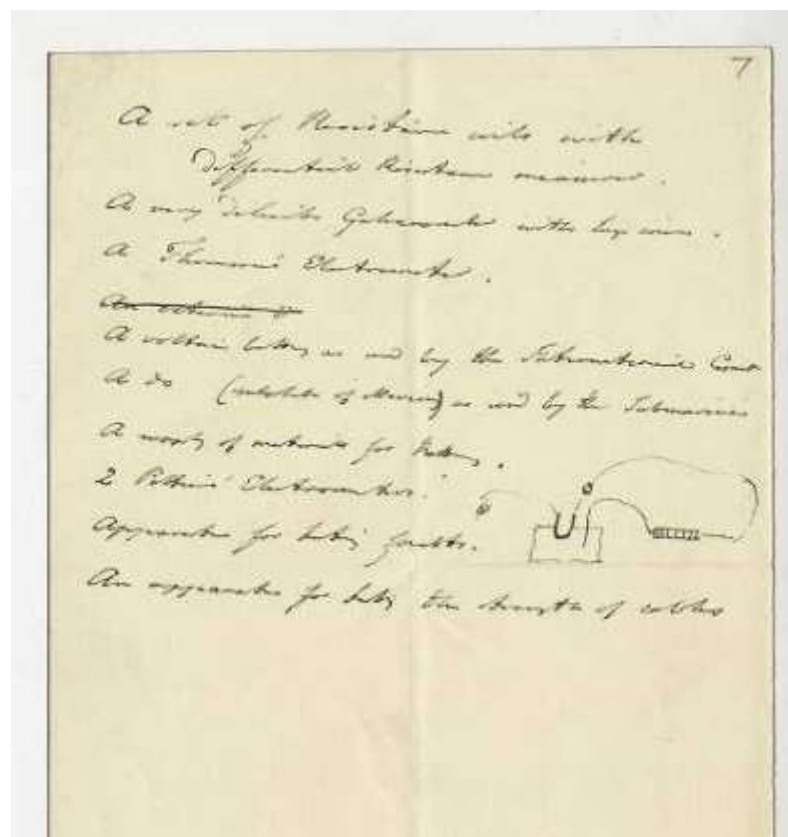 7
A set of Resistance coils with
differential Resistance measurer.
A very delicate Galvanometer with large wires.
A Thomson's Electrometer.
A voltaic battery as used by the
A do (sulphate of Mercury) as used by the Submarine
A supply of materials for Battery.
2 Peltier's Electrometers.
Apparatus for testing faults.
An apparatus for testing the strength of cables